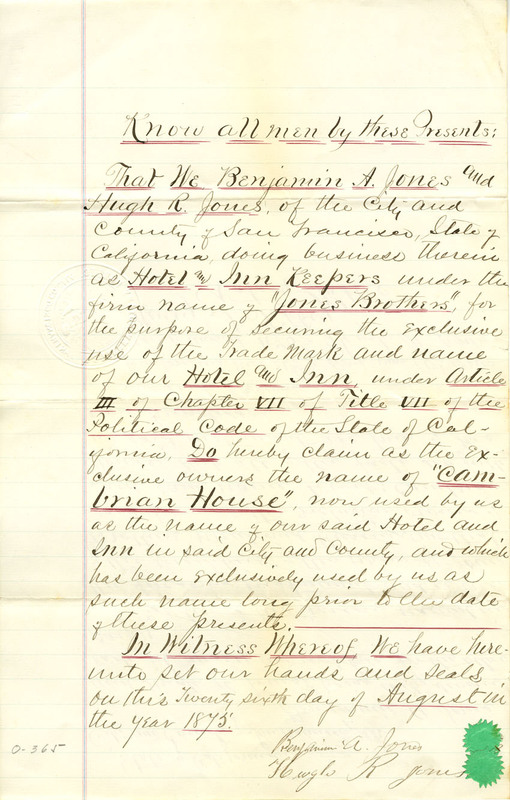 Know all men by these Presents:
That We Benjamin A. Jones and
Hugh R. Jones, of the City and
County of San Francisco, State of
California, doing business therein
as Hotel and Inn Keepers under the
firm name of "Jones Brothers", for
the purpose of securing the exclusive
use of the Trade Mark and name
of our Hotel and Inn, under Article
III of Chapter VII of Title VII of the
Political Code of the State of Cal-
ifornia, Do hereby claim as the ex-
clusive owners the name of "Cam-
brian House", now used by us
as the name of our said Hotel and
Inn in said City and County, and which
has been exclusively used by us as
such name long prior to the date
of these presents.
In Witness Whereof, We have here-
unto set our hands and seals
on this Twenty sixth day of August in
the year 1875.
Benjamin A. Jones
Hugh R Jones
0-365